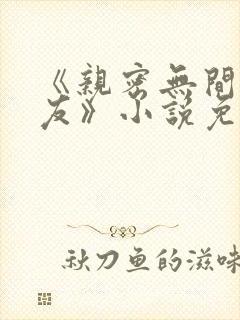 《親密無間
友》小說免
秋刀鱼的滋味